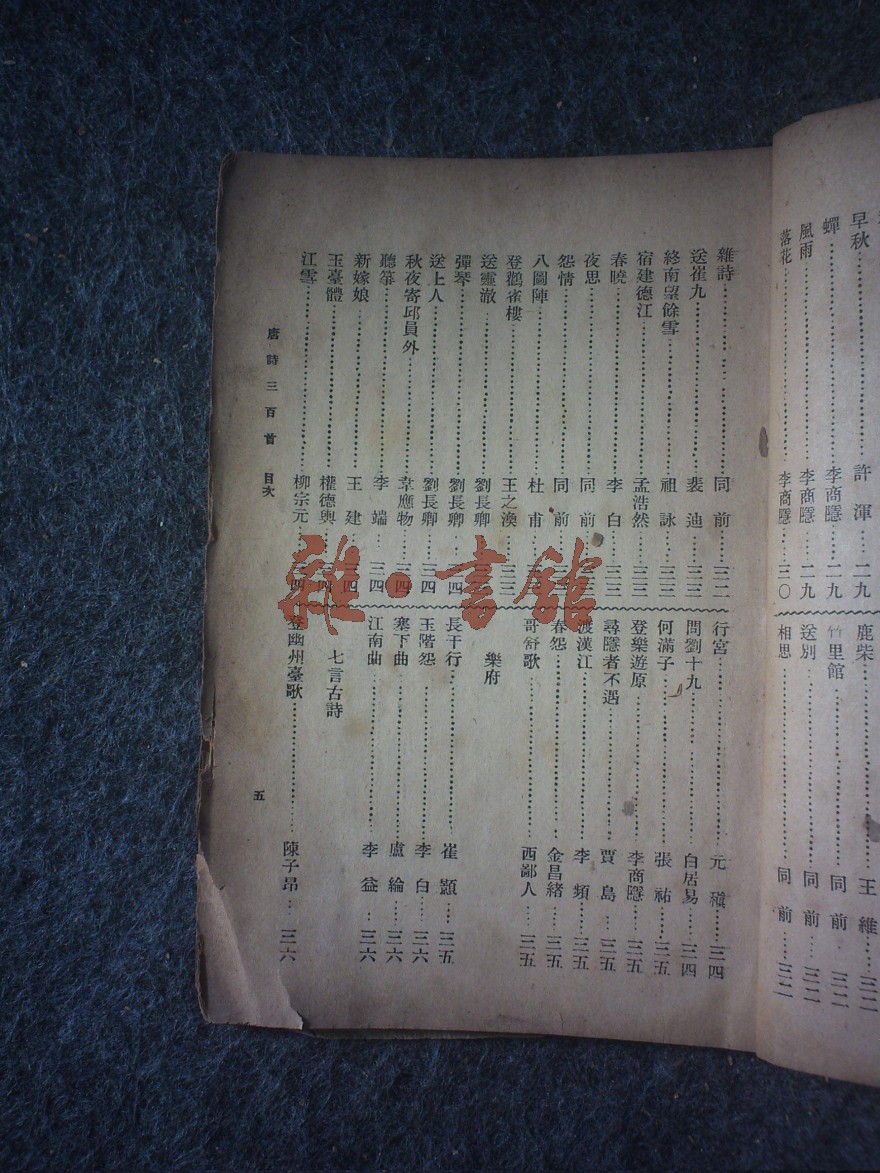 早秋 許渾 二九
蟬 李商隱 二九
風雨 李商隱 二九
落花 李商隱 三〇
鹿柴 王維 三二
竹里館 同前 三二
送別 同前 三二
相思 同前 三二
雜詩 同前 三二
送崔九 裴迪 三三
終南望餘雪 祖詠 三三
宿建德江 孟浩然 三三
春曉
夜思 李白 三三
怨情 同前
八圖陣 杜甫
登鸛雀樓 王之渙 三三
送靈澈 劉長卿
彈琴 劉長卿 三四
送上人 劉長卿 三四
秋夜寄邱員外 韋應物 三四
聽箏 李端 三四
新嫁娘 王建
玉臺體 權德輿
江雪 柳宗元
行宮 元稹 三四
問劉十九 白居易 三四
何滿子 張祜 三五
登樂遊原 李商隱 三五
尋隱者不遇 賈島 三五
渡漢江 李頻 三五
春怨 金昌緒 三五
哥舒歌 西鄙人 三五
樂府
長干行 崔顥 三五
玉階怨 李白 三六
塞下曲 盧綸 三六
江南曲 李益 三六
七言古詩
登幽州臺歌 陳子昂 三六
唐詩三百首 目次
五
雜·書館